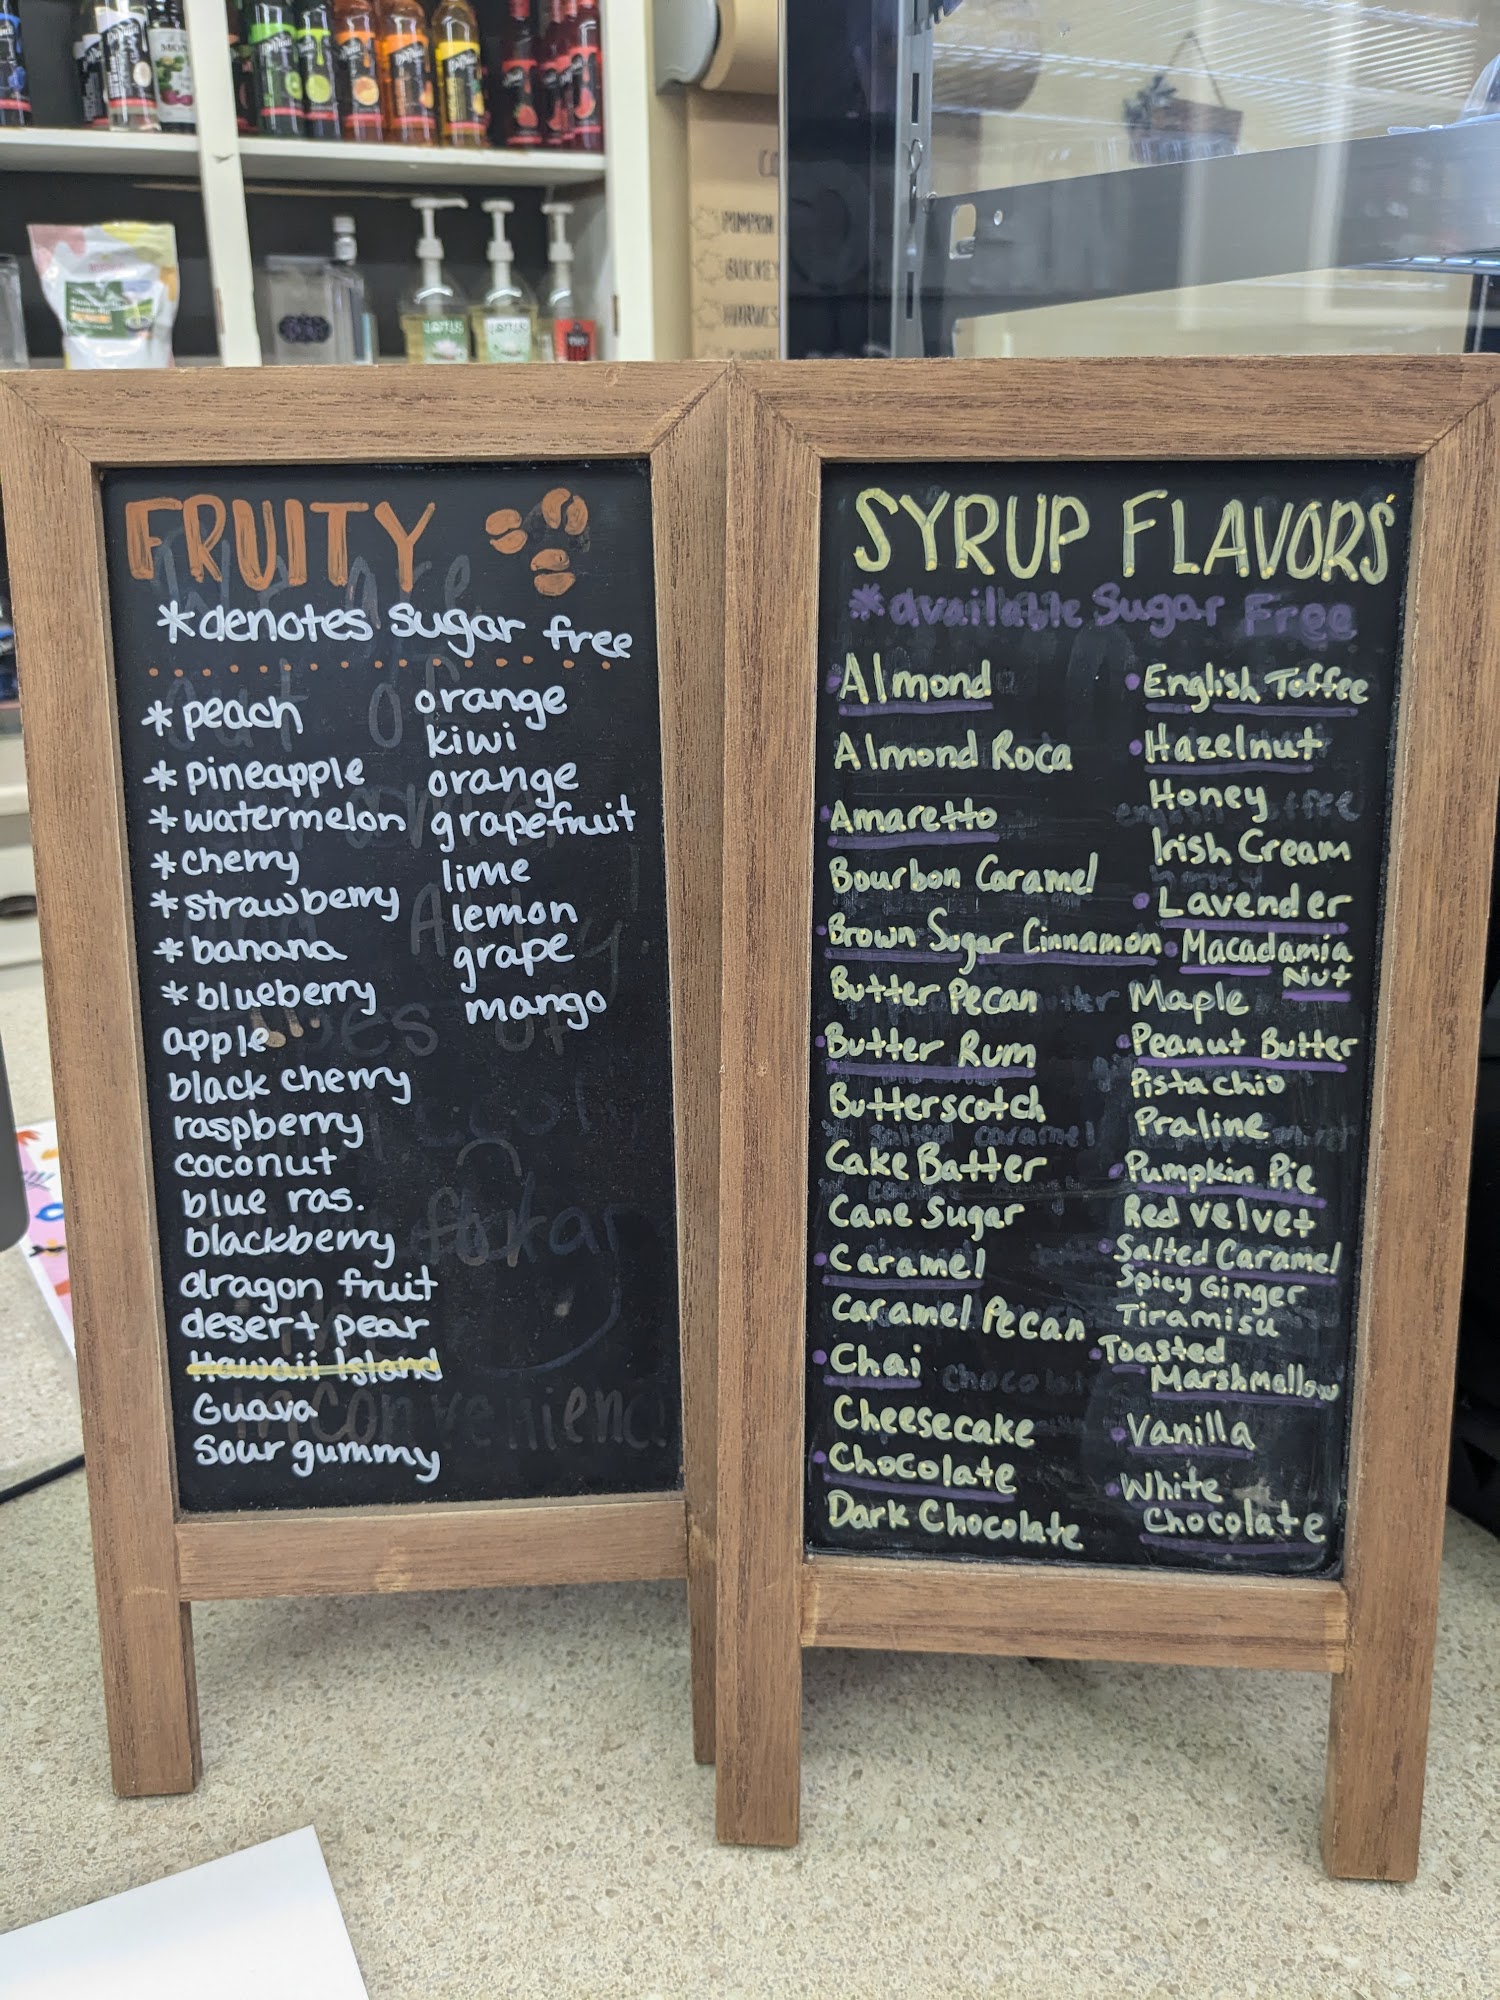 PUMPKIN
BUCKEY
HARVES
FRUITY
*denotes sugar free
*peach
*pineapple
*watermelon
*cherry
*strawberry
*banana
*blueberry
apple
black cherry
raspberry
coconut
blue ras.
blackberry
dragon fruit
desert pear
Hawaii Island
Guava
Sour gummy
orange
kiwi
orange
grapefruit
lime
lemon
grape
mango
SYRUP FLAVORS
*available Sugar Free
•Almond
Almond Roca
•Amaretto
Bourbon Caramel
•Brown Sugar Cinnamon
Butter Pecan
•Butter Rum
Butterscotch
Cake Batter
Cane Sugar
•Caramel
Caramel Pecan
•Chai
Cheesecake
•Chocolate
Dark Chocolate
•English Toffee
•Hazelnut
Honey
Irish Cream
•Lavender
•Macadamia
Nut
Maple
•Peanut Butter
Pistachio
Praline
•Pumpkin Pie
Red Velvet
•Salted Caramel
Spicy Ginger
Tiramisu
•Toasted
Marshmallow
•Vanilla
•White
Chocolate